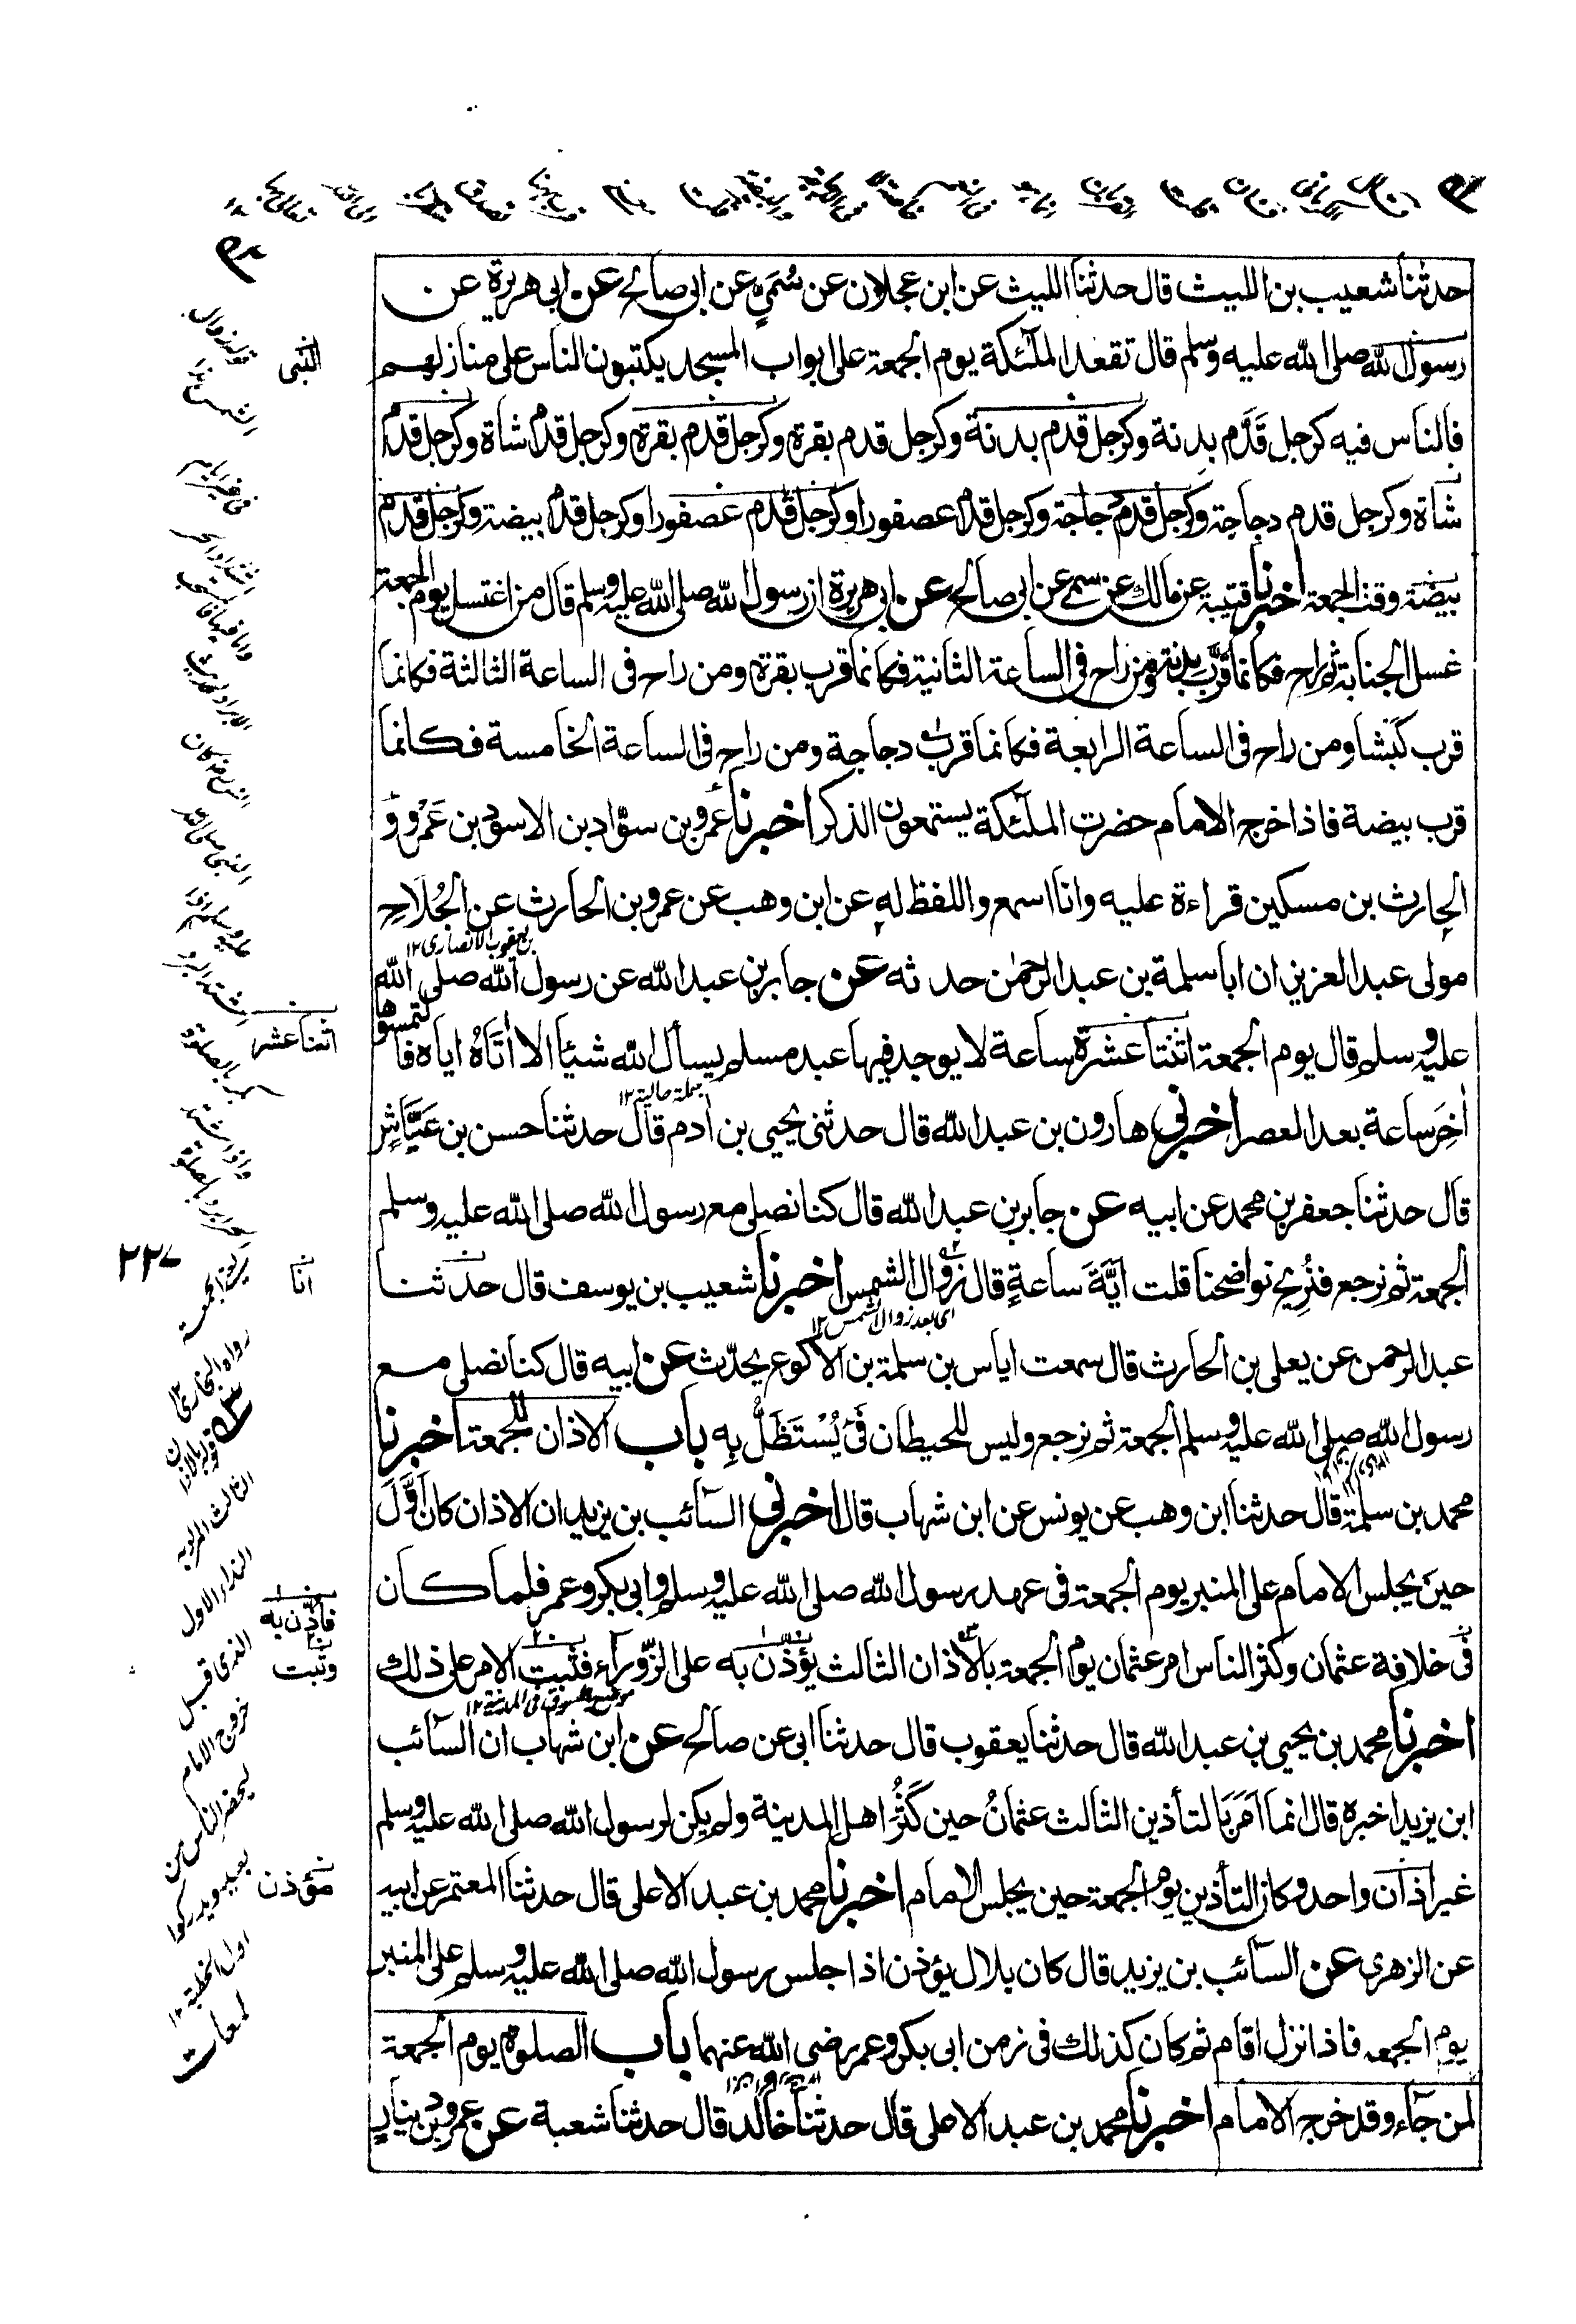 حدثنا شعيب بن الليث قال حدثنا الليث عن ابن عجلان عن سُمَيٍّ عن ابى صالح عن ابى هريرة عن
رسول الله صلى الله عليه وسلم قال تقعد الملٰئكة يوم الجمعة على ابواب المسجد يكتبون الناس على منازلهم
فالناس فيه كرجل قَدَّم بدنة وكرجل قدم بدنة وكرجل قدم بقرة وكرجل قدم بقرة وكرجل قدم شاة وكرجل قدم
شاة وكرجل قدم دجاجة وكرجل قدم دجاجة وكرجل قدم عصفورا وكرجل قدم عصفورا وكرجل قدم بيضة وكرجل قدم
بيضة وقت الجمعة اخبرنا قتيبة عن مالك عن سمى عن ابى صالح عن ابى هريرة ان رسول الله صلى الله عليه وسلم قال من اغتسل يوم الجمعة
غسل الجنابة ثم راح فكانما قرَّب بدنة ومن راح فى الساعة الثانية فكانما قرب بقرة ومن راح فى الساعة الثالثة فكانما
قرب كبشا ومن راح فى الساعة الرابعة فكانما قرب دجاجة ومن راح فى الساعة الخامسة فكانما
قرب بيضة فاذا خرج الامام حضرت الملٰئكة يستمعون الذكر اخبرنا عمرو بن سوّاد بن الاسود بن عَمْرو وَ
الحارث بن مسكين قراءة عليه وانا اسمع واللفظ له عن ابن وهب عن عمرو بن الحارث عن الجُلَاحِ
بن يعقوب الانصارى ١٢
مولى عبد العزيز ان ابا سلمة بن عبد الرحمٰن حدثه عن جابر بن عبد الله عن رسول الله صلى الله
عليه وسلم قال يوم الجمعة اثنتا عشرة ساعة لا يوجد فيها عبد مسلم يسأل الله شيئا الا اٰتَاهُ اياه فالتمسوها
جملة حالية ١٢
اٰخِرَ ساعة بعد العصر اخبرنى هارون بن عبد الله قال حدثنى يحيى بن اٰدم قال حدثنا حسن بن عَيَّاشٍ
قال حدثنا جعفر بن محمد عن ابيه عن جابر بن عبد الله قال كنا نصلى مع رسول الله صلى الله عليه وسلم
الجمعة ثم نرجع فنُرِيح نواضحنا قلت اَيَّةَ ساعةٍ قال زوال الشمس اخبرنا شعيب بن يوسف قال حدثنا
اى بعد زوال الشمس ١٢
عبد الرحمن عن يعلى بن الحارث قال سمعت اياس بن سلمة بن الاكوع يحدّث عن ابيه قال كنا نصلى مع
رسول الله صلى الله عليه وسلم الجمعة ثم نرجع وليس للحيطان فَىْءٌ يُسْتَظَلُّ بِهٖ باب الاذان للجمعة اخبرنا
محمد بن سلمة قال حدثنا ابن وهب عن يونس عن ابن شهاب قال اخبرنى السائب بن يزيد ان الاذان كان اَوَّلَ
حين يجلس الامام على المنبر يوم الجمعة فى عهد رسول الله صلى الله عليه وسلم وابى بكر وعمر فلما كان
فى خلافة عثمان وكثر الناس امر عثمان يوم الجمعة بالاذان الثالث يؤذّن به على الزّوراء فثبت الامر على ذلك
موضع بسوق فى المدينة ١٢
اخبرنا محمد بن يحيى بن عبد الله قال حدثنا يعقوب قال حدثنا ابى عن صالح عن ابن شهاب ان السائب
ابن يزيد اخبره قال انما اَمَرَ بالتأذين الثالث عثمانُ حين كَثُرَ اهل المدينة ولم يكن لرسول الله صلى الله عليه وسلم
غير اذان واحد وكان التأذين يوم الجمعة حين يجلس الامام اخبرنا محمد بن عبد الاعلى قال حدثنا المعتمر عن ابيه
عن الزهرى عن السائب بن يزيد قال كان بلال يؤذن اذا جلس رسول الله صلى الله عليه وسلم على المنبر
يوم الجمعة فاذا نزل اقام ثم كان كذلك فى زمن ابى بكر وعمر رضى الله عنهما باب الصلوة يوم الجمعة
لمن جاء وقد خرج الامام اخبرنا محمد بن عبد الاعلى قال حدثنا خالد قال حدثنا شعبة عن عمرو بن دينارٍ
النبى
اثنا عشر
انا
فأذّن به
وثبت
مؤذن
٢٢٧
النبى صلى الله
عليه وسلم اذا
اشتد البرد
بكر بالصلوة
واذا اشتد
الحر ابرد بالصلوة
يعنى الجمعة
رواه البخارى ١٢
قوله بالاذان
الثالث المراد به
النداء الاول
الذى قبل
خروج الامام
ليحضر الناس من
بعيد ويدركوا
اول الخطبة ١٢
لمعات